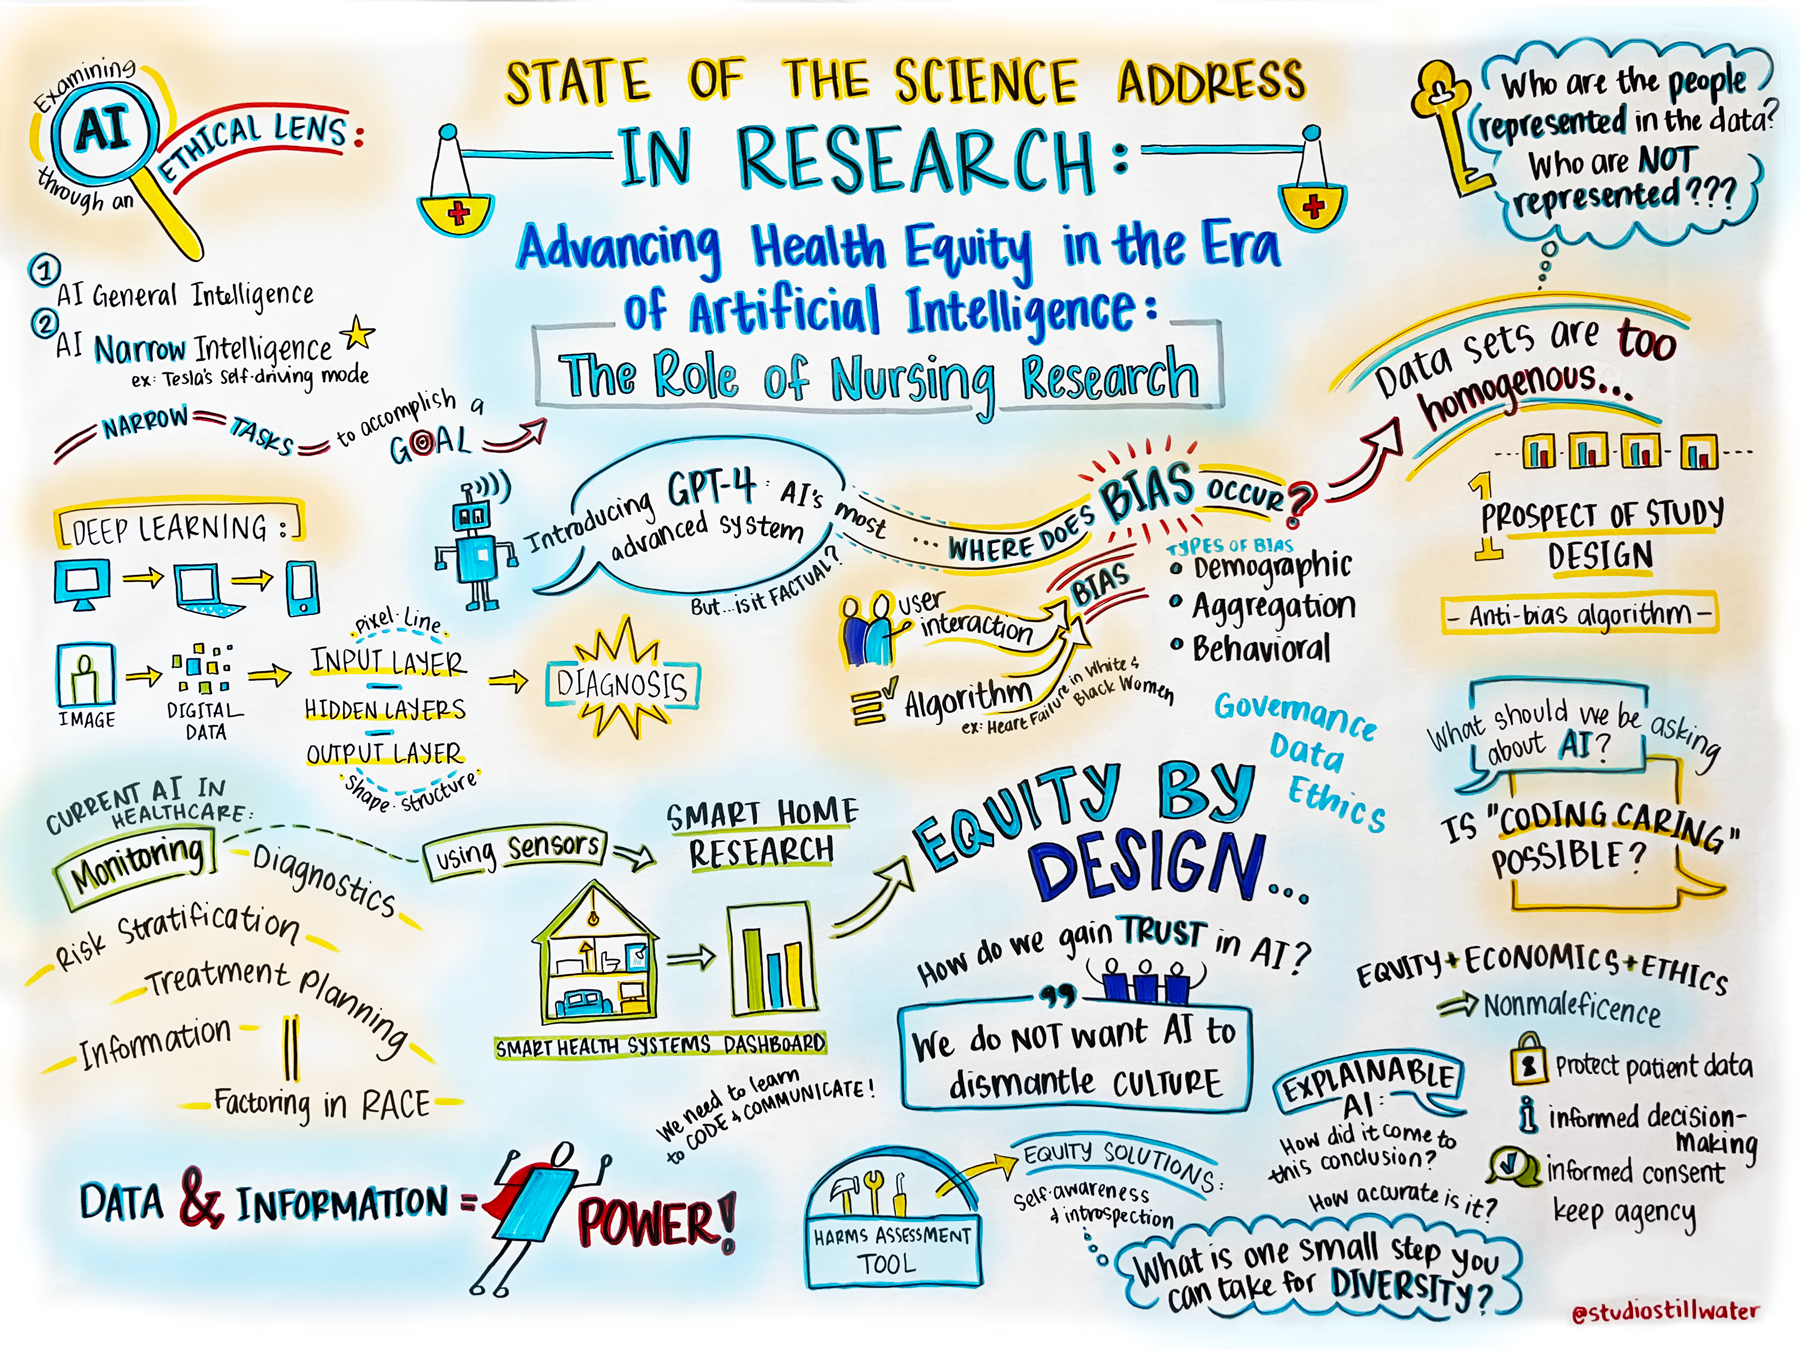 Examining
AI
through an
ETHICAL LENS:
1
AI General Intelligence
2
AI Narrow Intelligence
ex: Tesla's self-driving mode
NARROW = TASKS = to accomplish a
GOAL
STATE OF THE SCIENCE ADDRESS
IN RESEARCH:
Advancing Health Equity in the Era
of Artificial Intelligence:
The Role of Nursing Research
Who are the people
represented in the data?
Who are NOT
represented???
Data sets are too
homogenous...
1
PROSPECT OF STUDY
DESIGN
- Anti-bias algorithm -
DEEP LEARNING:
IMAGE
DIGITAL
DATA
Pixel·Line
INPUT LAYER
HIDDEN LAYERS
OUTPUT LAYER
Shape·structure
DIAGNOSIS
Introducing GPT-4: AI's most
advanced system
But...is it FACTUAL?
... WHERE DOES BIAS OCCUR?
user
interaction
Algorithm
ex: Heart Failure in White &
Black Women
BIAS
TYPES OF BIAS
• Demographic
• Aggregation
• Behavioral
Governance
Data
Ethics
What should we be asking
about AI?
IS "CODING CARING"
POSSIBLE?
CURRENT AI IN
HEALTHCARE:
Monitoring
Diagnostics
Risk Stratification
Treatment Planning
Information
Factoring in RACE
using sensors
SMART HOME
RESEARCH
SMART HEALTH SYSTEMS DASHBOARD
EQUITY BY
DESIGN...
How do we gain TRUST in AI?
"
We do NOT want AI to
dismantle CULTURE
EQUITY+ECONOMICS+ETHICS
Nonmaleficence
Protect patient data
informed decision-
making
informed consent
keep agency
EXPLAINABLE
AI:
How did it come to
this conclusion?
How accurate is it?
We need to learn
to CODE & COMMUNICATE!
DATA & INFORMATION =
POWER!
HARMS ASSESSMENT
TOOL
EQUITY SOLUTIONS:
Self-awareness
& introspection
What is one small step you
can take for DIVERSITY?
@studiostillwater